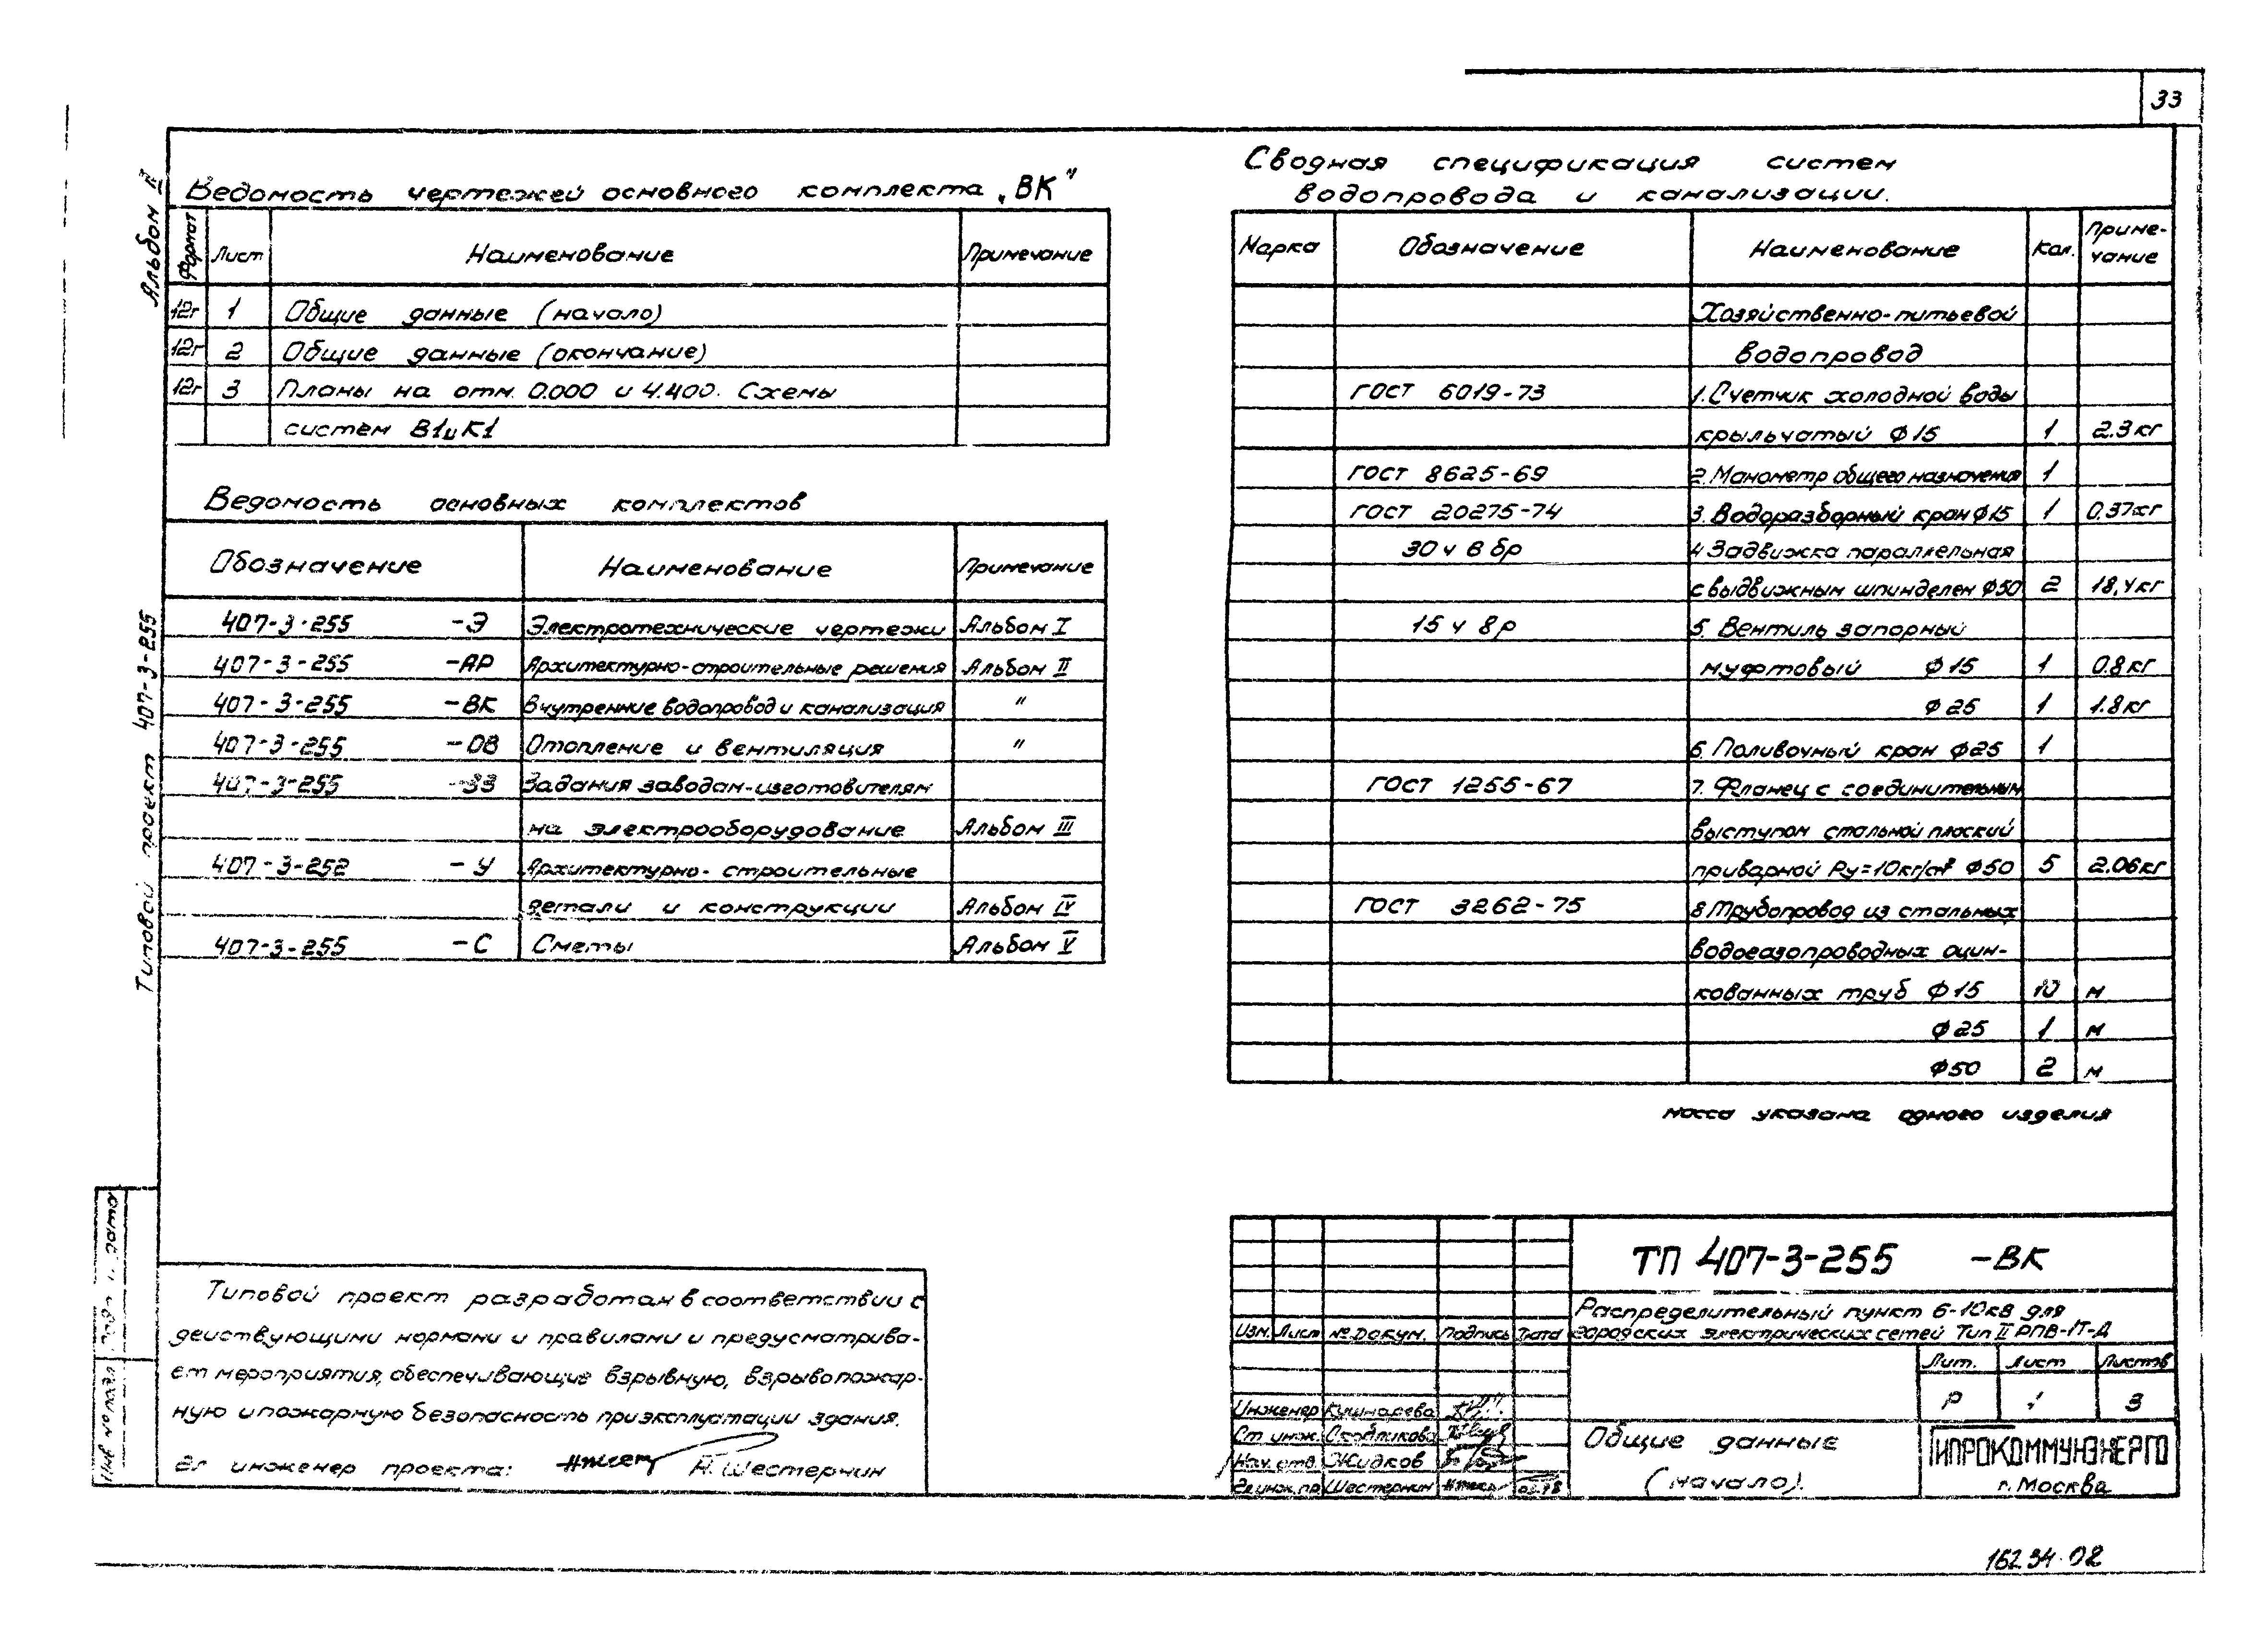 33
Альбом II
Типовой проект 407-3-255
Ведомость чертежей основного комплекта „ВК"
Формат Лист Наименование Примечание
12г 1 Общие данные (начало)
12г 2 Общие данные (окончание)
12г 3 Планы на отм. 0.000 и 4.400. Схемы
систем В1 и К1
Ведомость основных комплектов
Обозначение Наименование Примечание
407-3-255 -Э Электротехнические чертежи Альбом I
407-3-255 -АР Архитектурно-строительные решения Альбом II
407-3-255 -ВК Внутренние водопровод и канализация "
407-3-255 -ОВ Отопление и вентиляция "
407-3-255 -ЗЗ Задания заводам-изготовителям
на электрооборудование Альбом III
407-3-252 -У Архитектурно-строительные
детали и конструкции Альбом IV
407-3-255 -С Сметы Альбом V
Типовой проект разработан в соответствии с
действующими нормами и правилами и предусматрива-
ет мероприятия, обеспечивающие взрывную, взрывопожар-
ную и пожарную безопасность при эксплуатации здания.
Гл инженер проекта: А. Шестернин
Сводная спецификация систем
водопровода и канализации.
Марка Обозначение Наименование Кол. Приме-
чание
Хозяйственно-питьевой
водопровод
ГОСТ 6019-73 1. Счетчик холодной воды
крыльчатый ф15 1 2.3кг
ГОСТ 8625-69 2. Манометр общего назначения 1
ГОСТ 20275-74 3. Водоразборный кран ф15 1 0.37кг
30 ч 6 бр 4 Задвижка параллельная
с выдвижным шпинделем ф50 2 18,4кг
15 ч 8р 5. Вентиль запорный
муфтовый ф15 1 0.8кг
ф25 1 1.8кг
6. Поливочный кран ф25 1
ГОСТ 1255-67 7. Фланец с соединительным
выступом стальной плоский
приварной Ру=10кг/см² ф50 5 2.06кг
ГОСТ 3262-75 8 Трубопровод из стальных
водогазопроводных оцин-
кованных труб ф15 10 м
ф25 1 м
ф50 2 м
масса указана одного изделия
ТП 407-3-255 -ВК
Распределительный пункт 6-10кв для
городских электрических сетей Тип II РПВ-1Т-Д
Изм. Лист № докум. Подпись Дата
Лит. Лист Листов
Р 1 3
Инженер Кушнарева
Ст инж. Сходникова
Нач. отд. Жидков
Гл инж. пр Шестернин
Общие данные
(начало).
ГИПРОКОММУНЭНЕРГО
г. Москва
16234-02